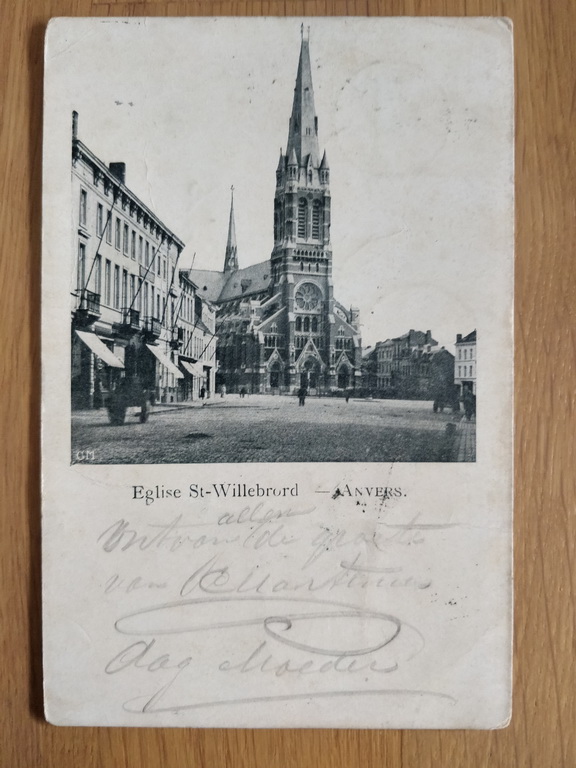 GM
Eglise St-Willebrord — ANVERS.
allen
Ontvang de groeten
van Martinus
dag Moeder